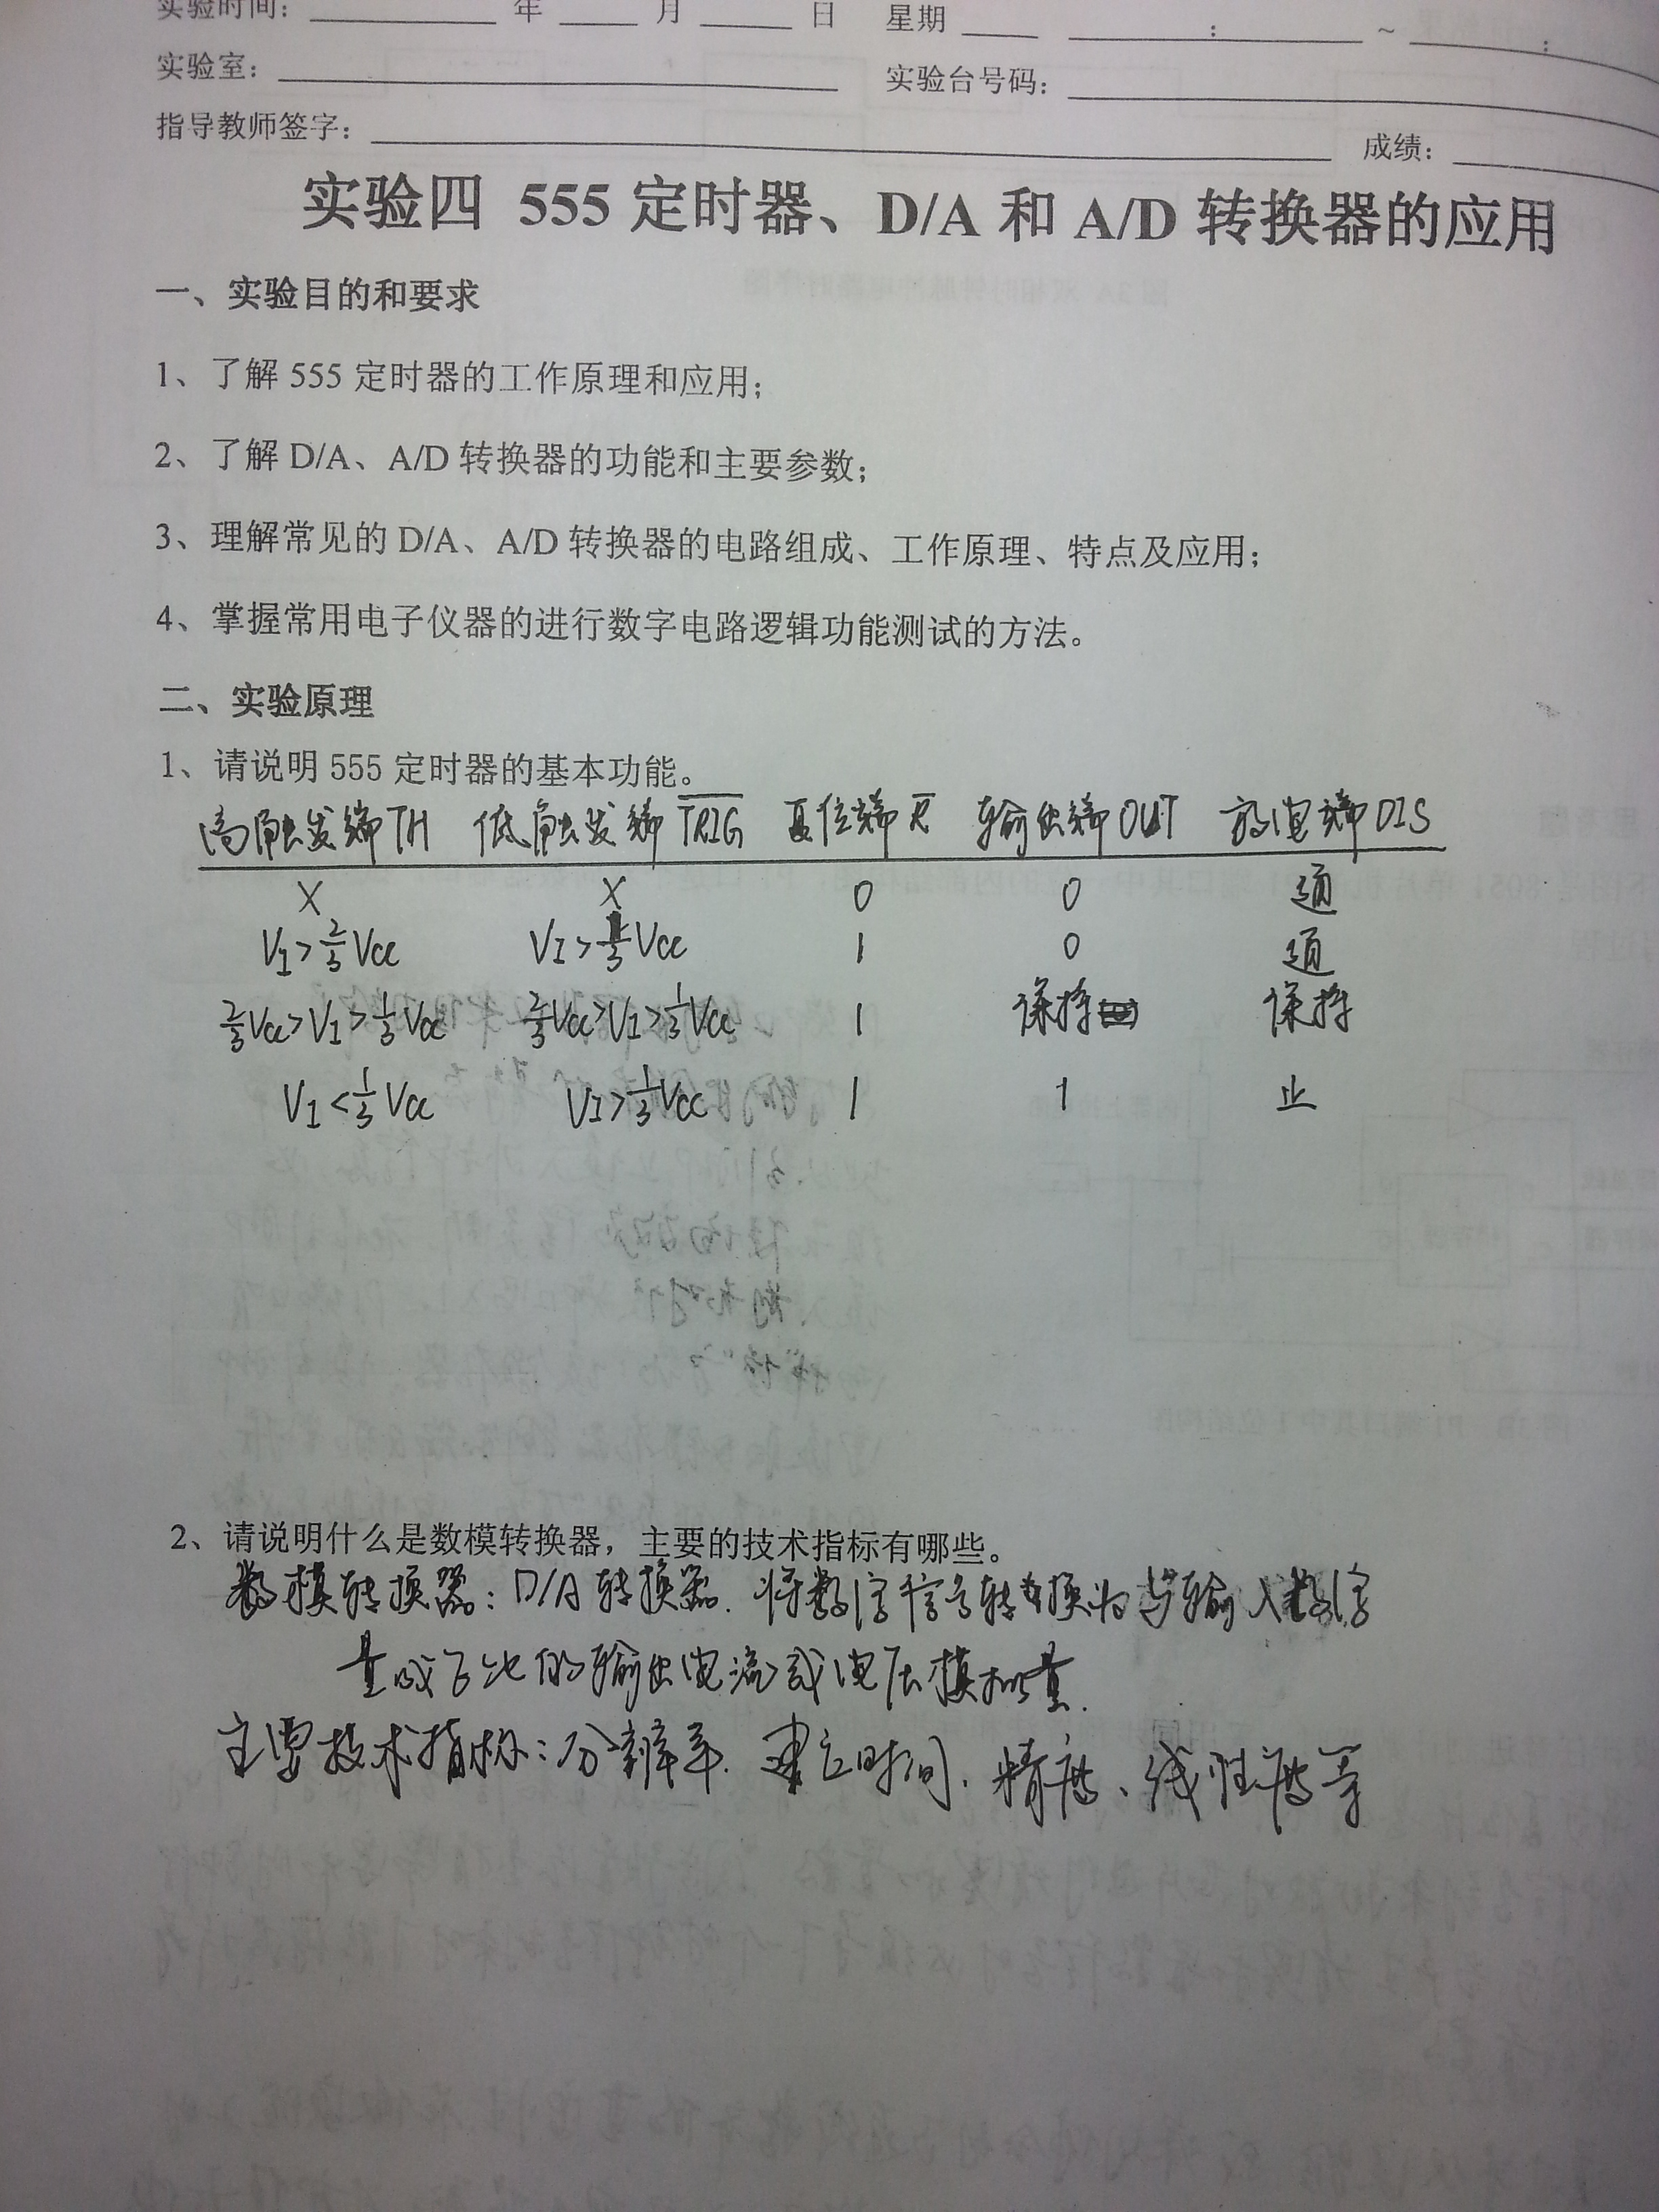 实验时间：年 月 日 星期 : ~ :
实验室： 实验台号码：
指导教师签字： 成绩：
实验四 555 定时器、D/A 和 A/D 转换器的应用
一、实验目的和要求
1、了解 555 定时器的工作原理和应用；
2、了解 D/A、A/D 转换器的功能和主要参数；
3、理解常见的 D/A、A/D 转换器的电路组成、工作原理、特点及应用；
4、掌握常用电子仪器的进行数字电路逻辑功能测试的方法。
二、实验原理
1、请说明 555 定时器的基本功能。
高触发端 TH 低触发端 T̅R̅I̅G̅ 复位端 R̅ 输出端 OUT 放电端 DIS
X X 0 0 通
V_I>2/3 Vcc V_I>1/3 Vcc 1 0 通
2/3Vcc>V_I>1/3Vcc 2/3Vcc>V_I>1/3Vcc 1 保持 保持
V_I<1/3 Vcc V_I>1/3Vcc 1 1 止
2、请说明什么是数模转换器，主要的技术指标有哪些。
数模转换器：D/A 转换器. 将数字信号转换为与输入数字
量成正比的输出电流或电压模拟量.
主要技术指标：分辨率. 建立时间. 精度、线性度等